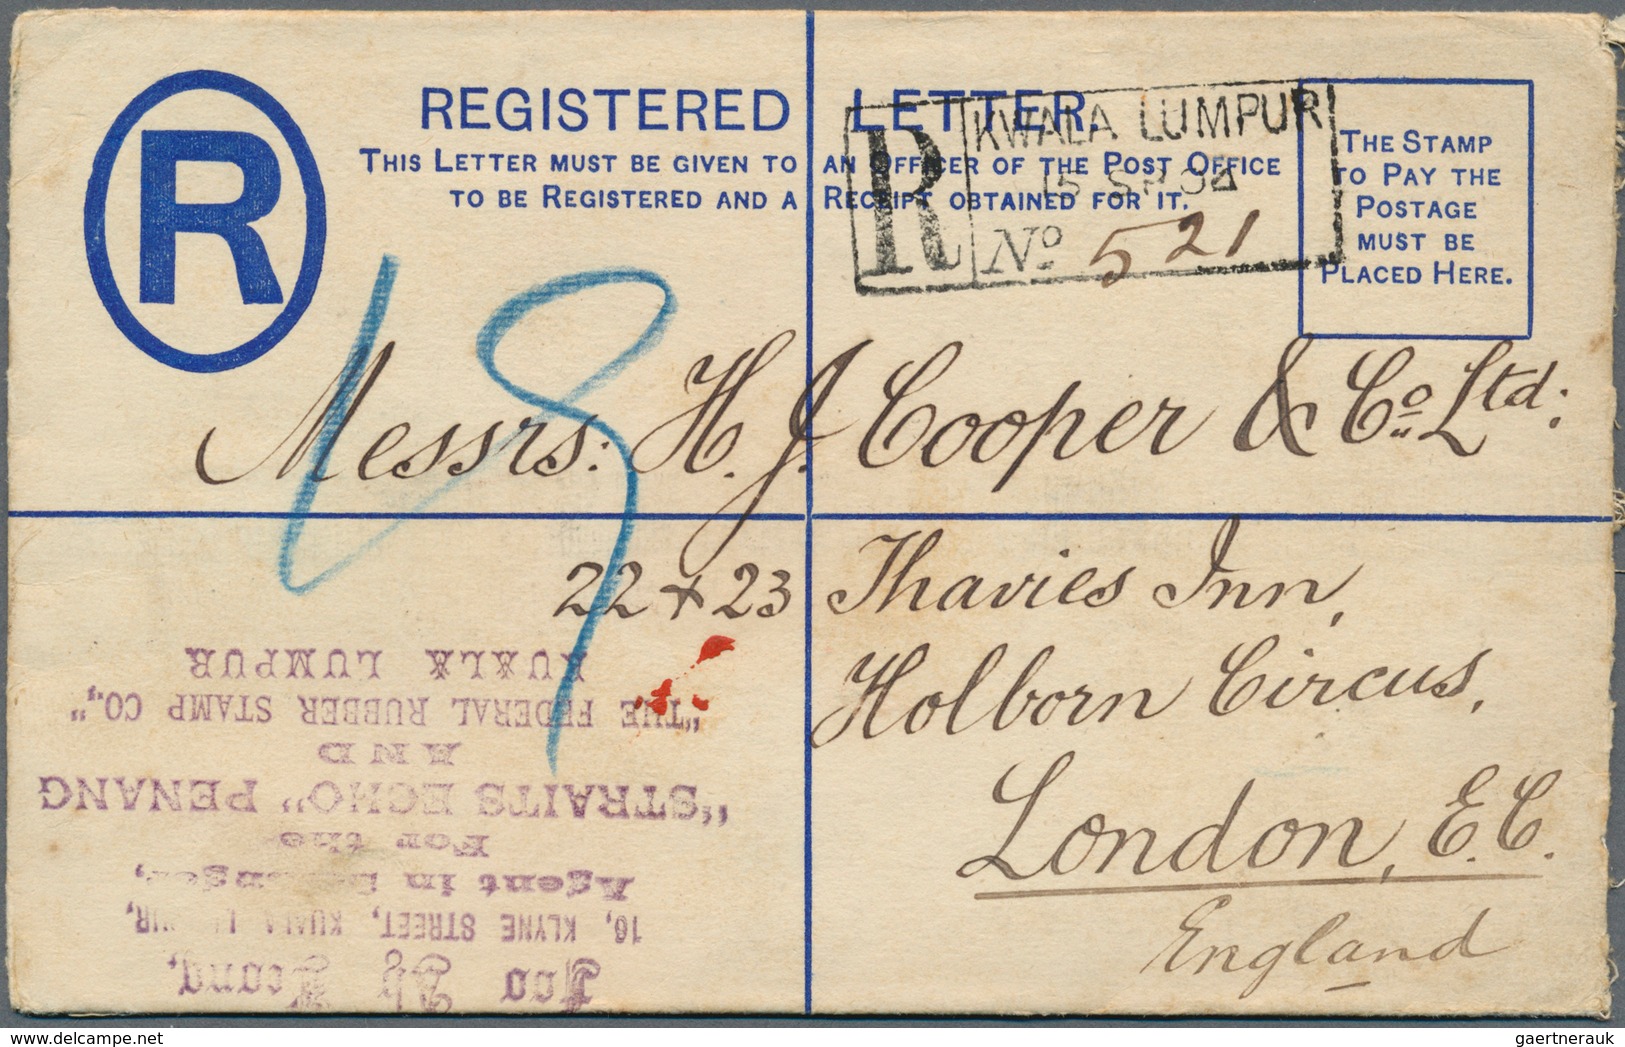 R
REGISTERED LETTER.
THIS LETTER MUST BE GIVEN TO AN OFFICER OF THE POST OFFICE
TO BE REGISTERED AND A RECEIPT OBTAINED FOR IT.
THE STAMP
TO PAY THE
POSTAGE
MUST BE
PLACED HERE.
R
KWALA LUMPUR
15 SP 04
No 521
Messrs: H. J. Cooper & Co Ltd:
22 + 23 Thavies Inn,
Holborn Circus,
London, E.C.
England
Foo
16, KLYNE STREET, KUALA
Agent in
For the
"STRAITS ECHO" PENANG
AND
"THE FEDERAL RUBBER STAMP CO.,"
KUALA LUMPUR
gaertnerauk